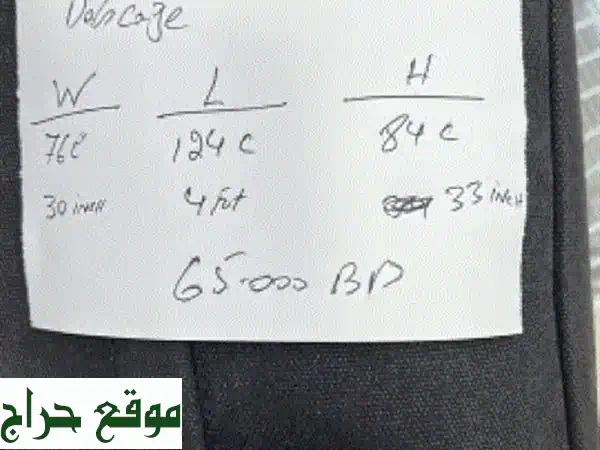 W L H
76c 124 c 84 c
30 inch 4 fut 33 inch
65.000 BD
موقع حراج